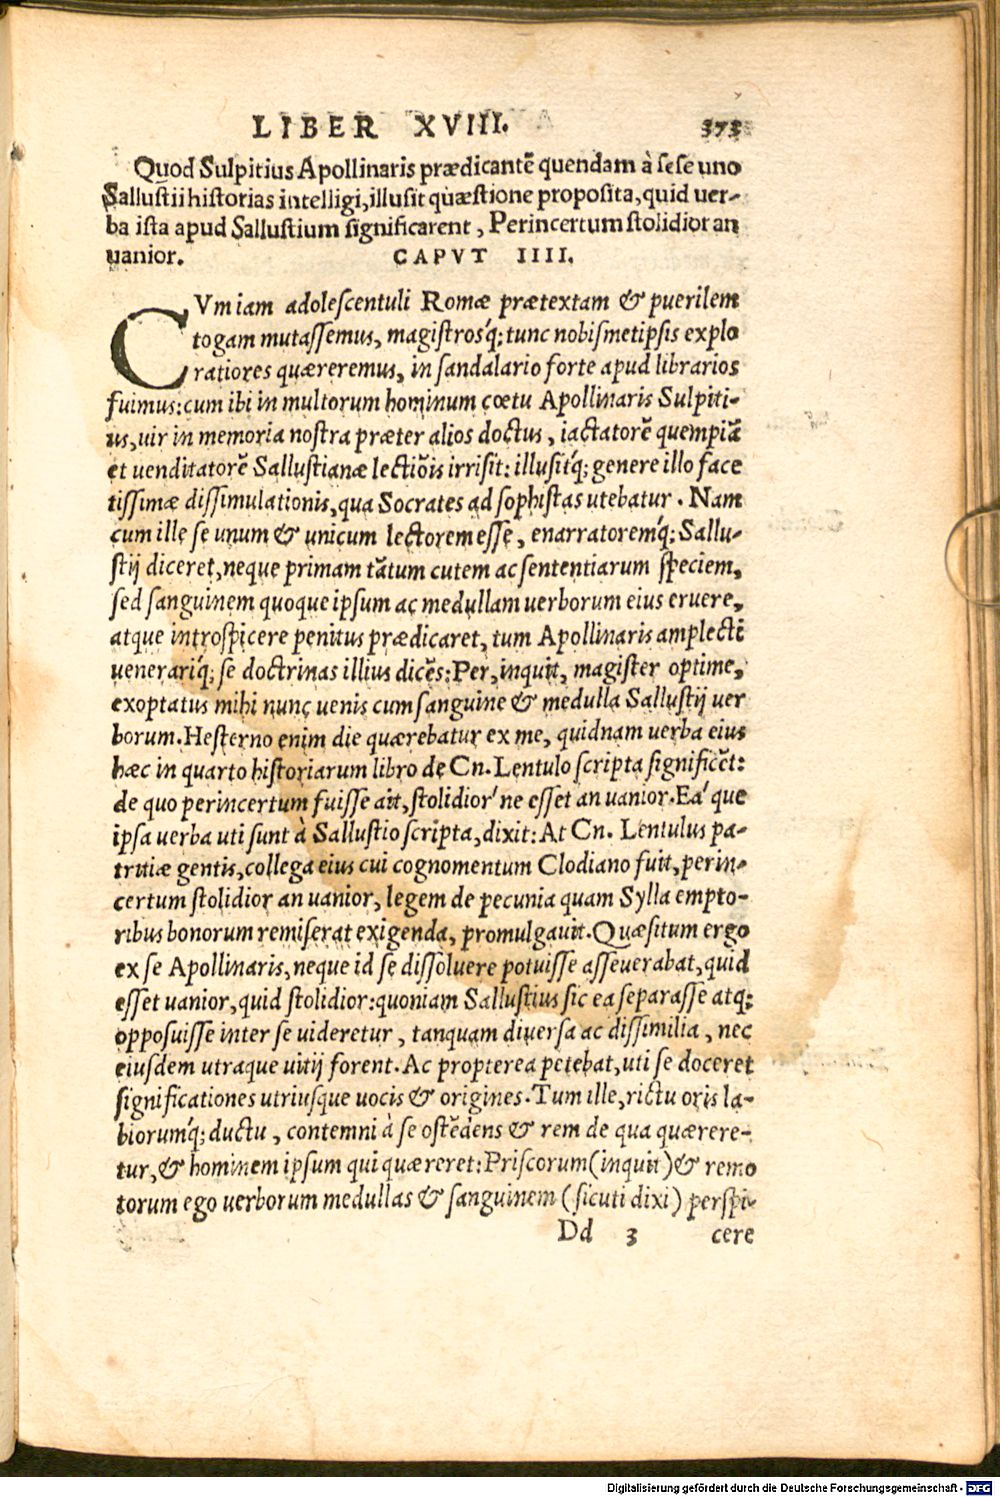 LIBER XVIII. 373
Quod Sulpitius Apollinaris prædicantẽ quendam à sese uno
Sallustii historias intelligi, illusit quæstione proposita, quid uer-
ba ista apud Sallustium significarent, Perincertum stolidior an
uanior. CAPVT IIII.
CVm iam adolescentuli Romæ prætextam & puerilem
togam mutassemus, magistrosq́; tunc nobismetipsis explo
ratiores quæreremus, in sandalario forte apud librarios
fuimus: cum ibi in multorum hominum cœtu Apollinaris Sulpiti-
us, uir in memoria nostra præter alios doctus, iactatorẽ quempiã
et uenditatorẽ Sallustianæ lectiõis irrisit: illusitq́; genere illo face
tissimæ dissimulationis, qua Socrates ad sophistas utebatur. Nam
cum ille se unum & unicum lectorem esse, enarratoremq́; Sallu-
stij diceret, neque primam tãtum cutem ac sententiarum speciem,
sed sanguinem quoque ipsum ac medullam uerborum eius eruere,
atque introspicere penitus prædicaret, tum Apollinaris amplecti
uenerariq́; se doctrinas illius dicẽs: Per, inquit, magister optime,
exoptatus mihi nunc uenis cum sanguine & medulla Sallustij uer
borum. Hesterno enim die quærebatur ex me, quidnam uerba eius
hæc in quarto historiarum libro de Cn. Lentulo scripta significẽt:
de quo perincertum fuisse ait, stolidior'ne esset an uanior. Ea'que
ipsa uerba uti sunt à Sallustio scripta, dixit: At Cn. Lentulus pa-
tritiæ gentis, collega eius cui cognomentum Clodiano fuit, perin-
certum stolidior an uanior, legem de pecunia quam Sylla empto-
ribus bonorum remiserat exigenda, promulgauit. Quæsitum ergo
ex se Apollinaris, neque id se dissoluere potuisse asseuerabat, quid
esset uanior, quid stolidior: quoniam Sallustius sic ea separasse atq;
opposuisse inter se uideretur, tanquam diuersa ac dissimilia, nec
eiusdem utraque uitij forent. Ac propterea petebat, uti se doceret
significationes utriusque uocis & origines. Tum ille, rictu oris la-
biorumq́; ductu, contemni à se ostẽdens & rem de qua quærere-
tur, & hominem ipsum qui quæreret: Priscorum (inquit) & remo
torum ego uerborum medullas & sanguinem (sicuti dixi) perspi-
Dd 3 cere
Digitalisierung gefördert durch die Deutsche Forschungsgemeinschaft - DFG